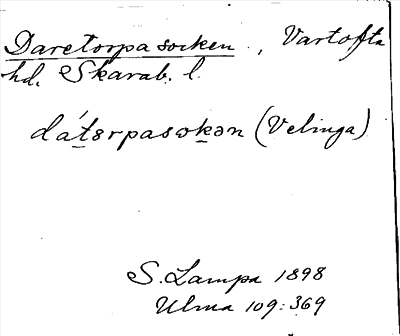 Daretorpa socken, Vartofta
hd. Skarab. l.
dátərpasωkən (Velinga)
S. Lampa 1898
Ulma 109:369